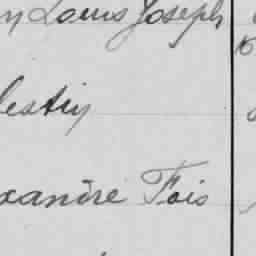 y Louis Joseph
lestin
xandre Fois